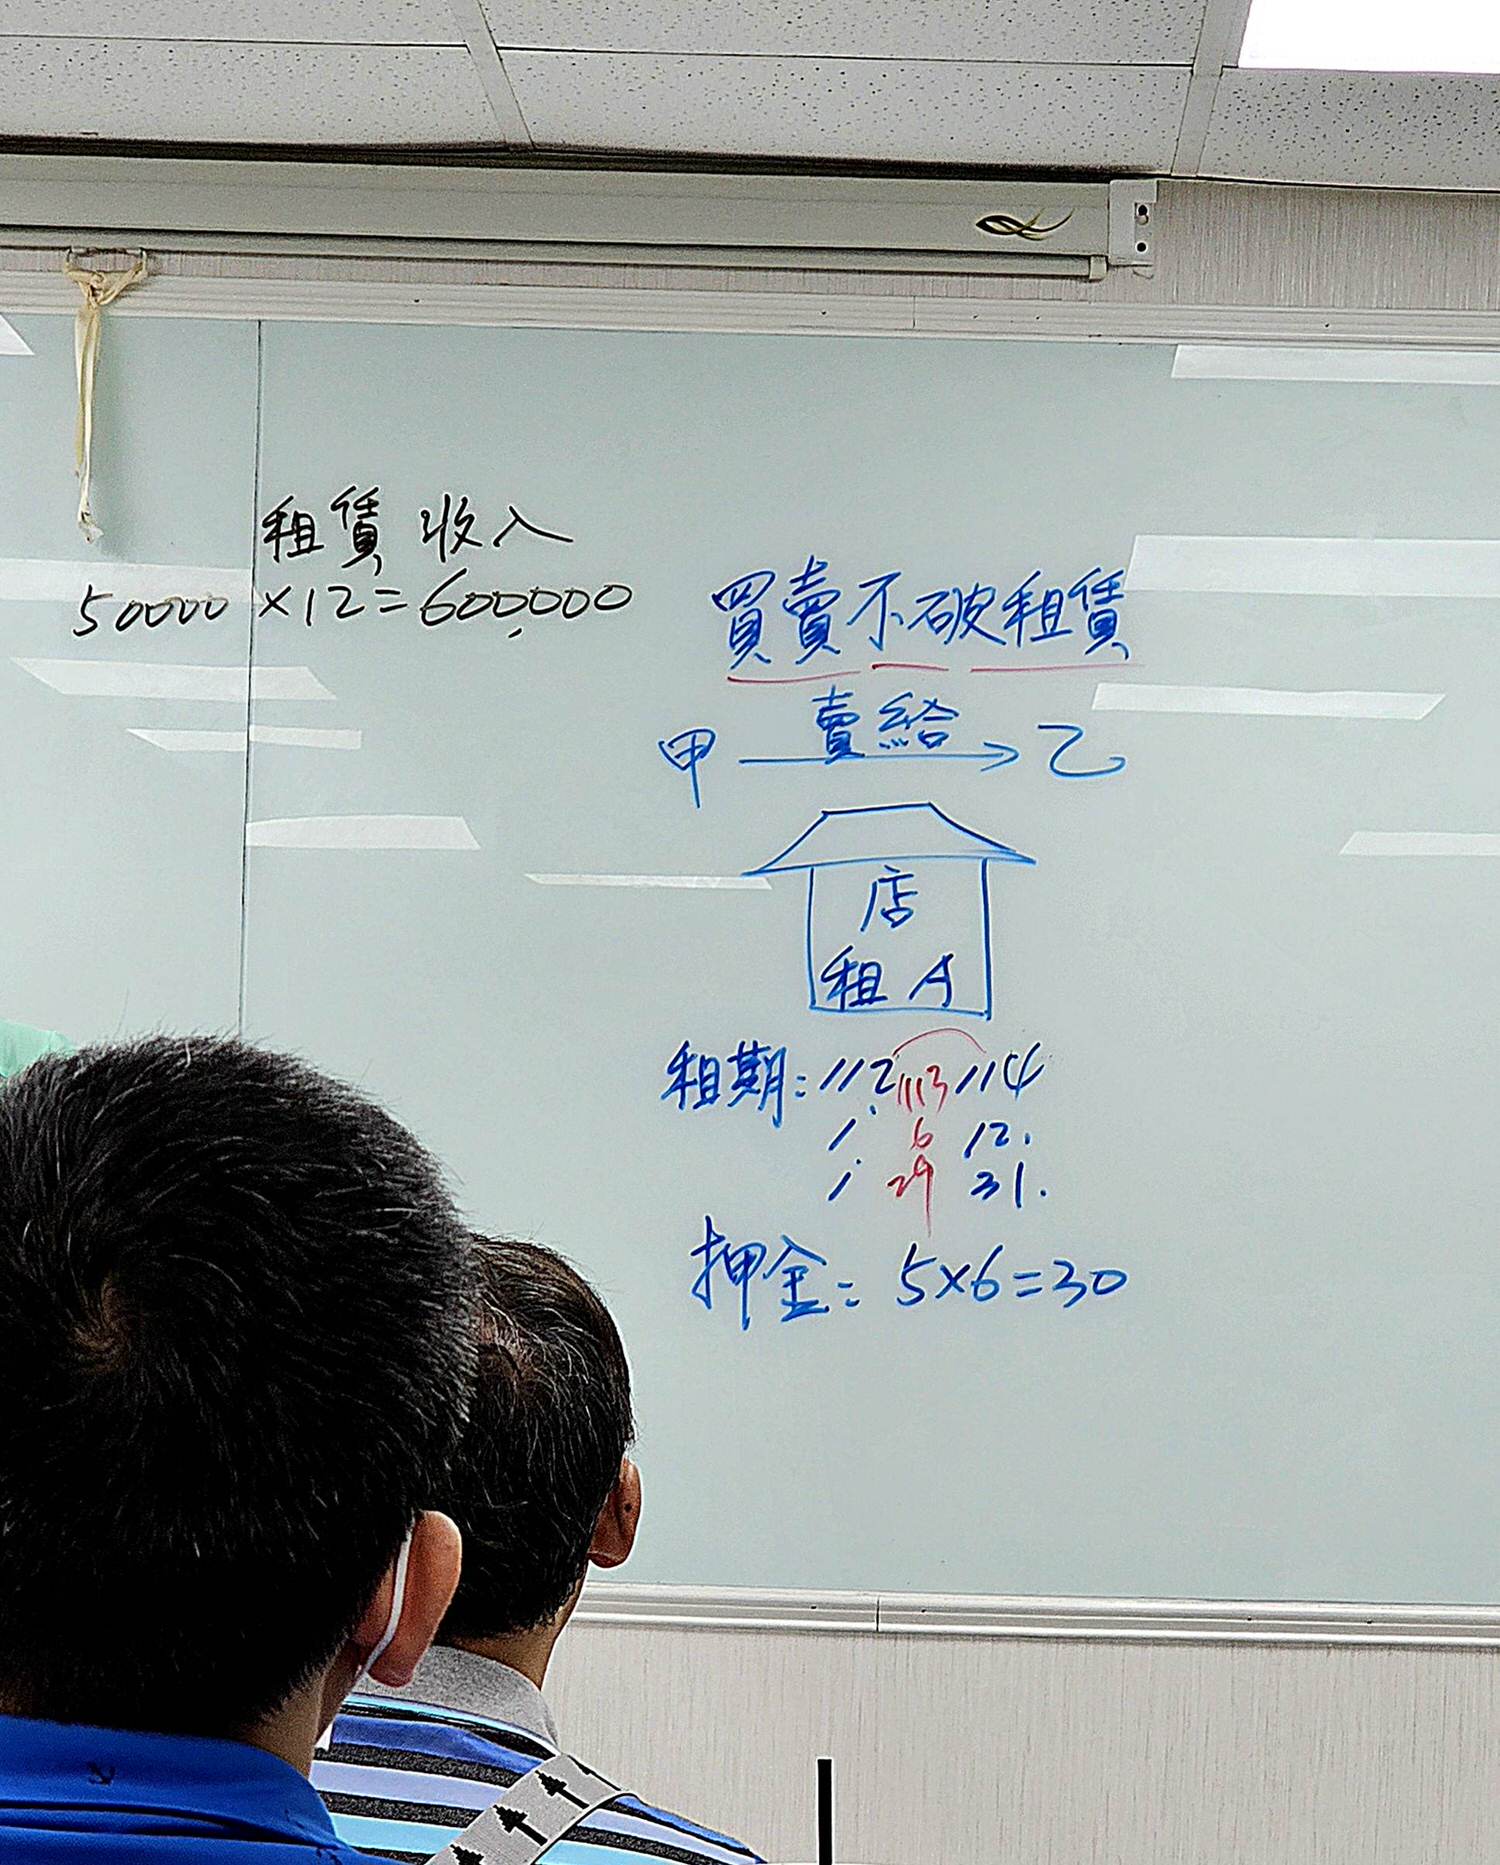 租賃收入
50000×12=600,000
買賣不破租賃
賣給
甲 → 乙
店
租A
租期:112 113 114
1 6 12.
1 29 31.
押金:5×6=30